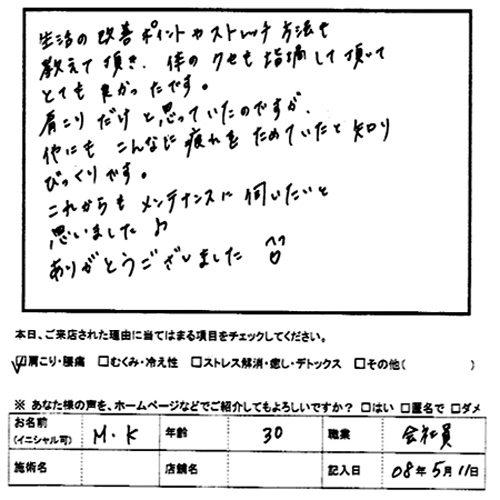 生活の改善ポイントやストレッチ方法も
教えて頂き、体のクセも指摘して頂いて
とても良かったです。
肩こりだけと思っていたのですが、
他にもこんなに疲れをためていたと知り
びっくりです。
これからもメンテナンスに伺いたいと
思いました♪
ありがとうございました
本日、ご来店された理由に当てはまる項目をチェックしてください。
☑肩こり・腰痛 □むくみ・冷え性 □ストレス解消・癒し・デトックス □その他( )
※ あなた様の声を、ホームページなどでご紹介してもよろしいですか? □はい □匿名で □ダメ
お名前(イニシャル可) M.K 年齢 30 職業 会社員
施術名 店舗名 記入日 08年5月11日